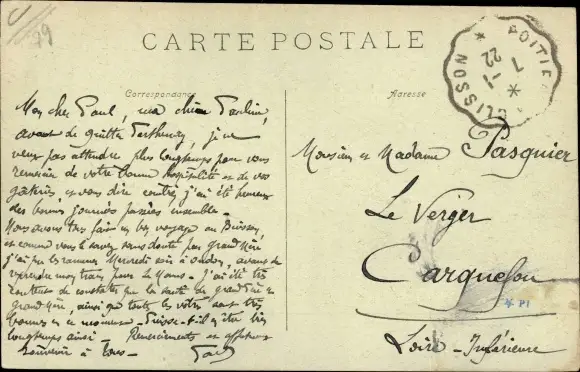 99
CARTE POSTALE
Correspondance
Adresse
POITIE
11
7
22
CLISSON
Mon cher Paul, ma chère Pauline,
avant de quitter Parthenay, je ne
veux pas attendre plus longtemps pour vous
remercier de votre bonne hospitalité et de vos
gateries et vous dire combien j'ai été heureux
des bonnes journées passées ensemble.
Nous avons très fait un bon voyage au Buisson,
et comme vous le savez sans doute par grand'mère
j'ai pu les ramener Mercredi soir à avant de
reprendre mon train pour le Mans. J'ai été très
content de constater que la santé de grand'père et
grand'mère, ainsi que toutes les vôtres sont très
bonnes en ce moment. Puisse-t-il en être très
longtemps ainsi. Remerciements et affectueux
Souvenir à tous.
Monsieur et Madame Pasquier
Le Verger
Carquefou
* PI
Loire-Inférieure